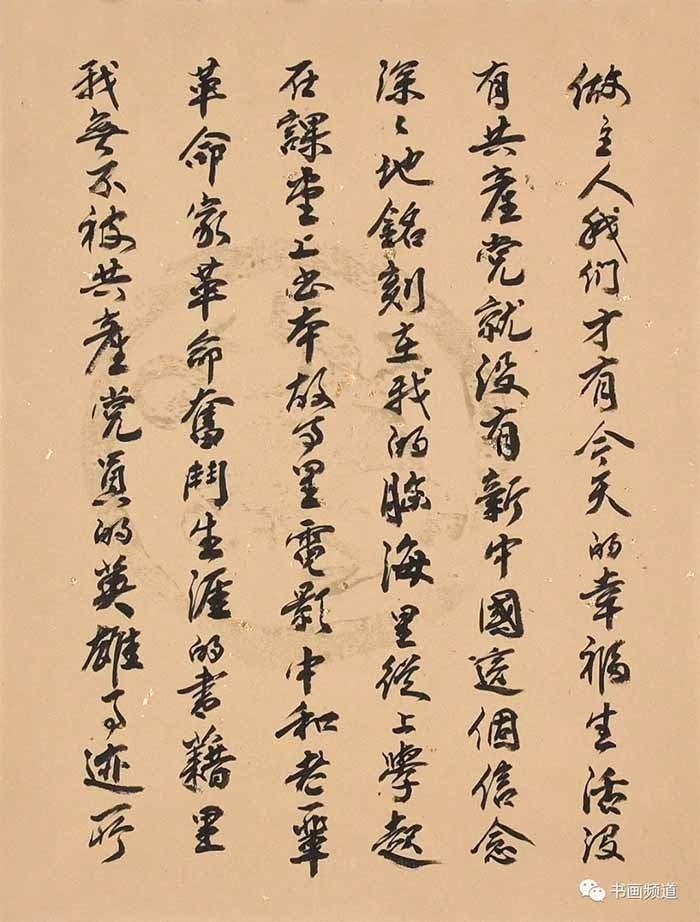 做主人我们才有今天的幸福生活没
有共產党就没有新中國這個信念
深々地銘刻在我的脑海里從上學起
在課堂上书本故事里電影中和老一輩
革命家革命奮鬥生涯的書籍里
我無不被共產党員的英雄事迹所
书画频道